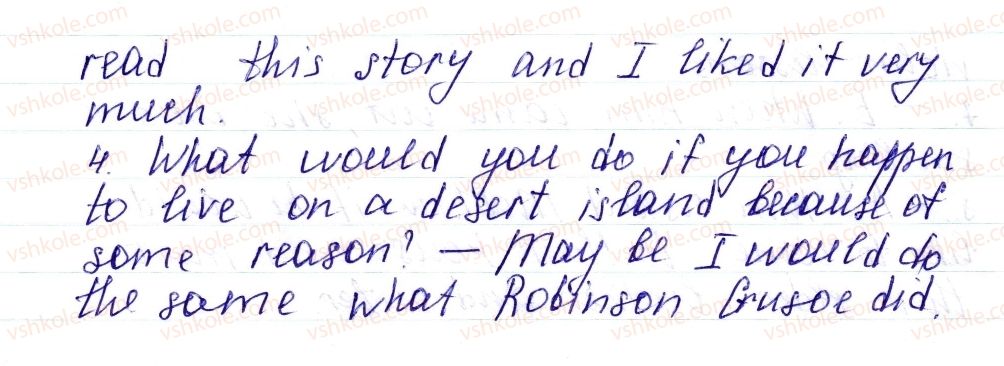 read this story and I liked it very
much.
4. What would you do if you happen
to live on a desert island because of
some reason? — May be I would do
the same what Robinson Crusoe did.